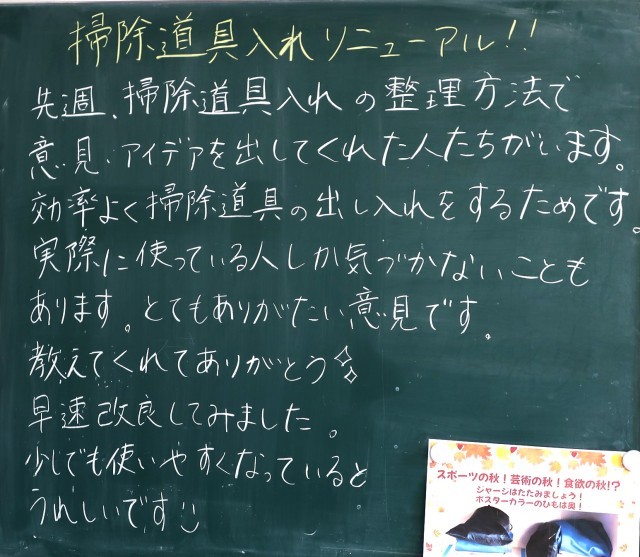 掃除道具入れリニューアル!!
先週、掃除道具入れの整理方法で
意見・アイデアを出してくれた人たちがいます。
効率よく掃除道具の出し入れをするためです。
実際に使っている人しか気づかないことも
あります。とてもありがたい意見です。
教えてくれてありがとう
早速改良してみました。
少しでも使いやすくなっていると
うれしいです
スポーツの秋!芸術の秋!食欲の秋!?
ジャージはたたみましょう!
ポスターカラーのひもは奥!